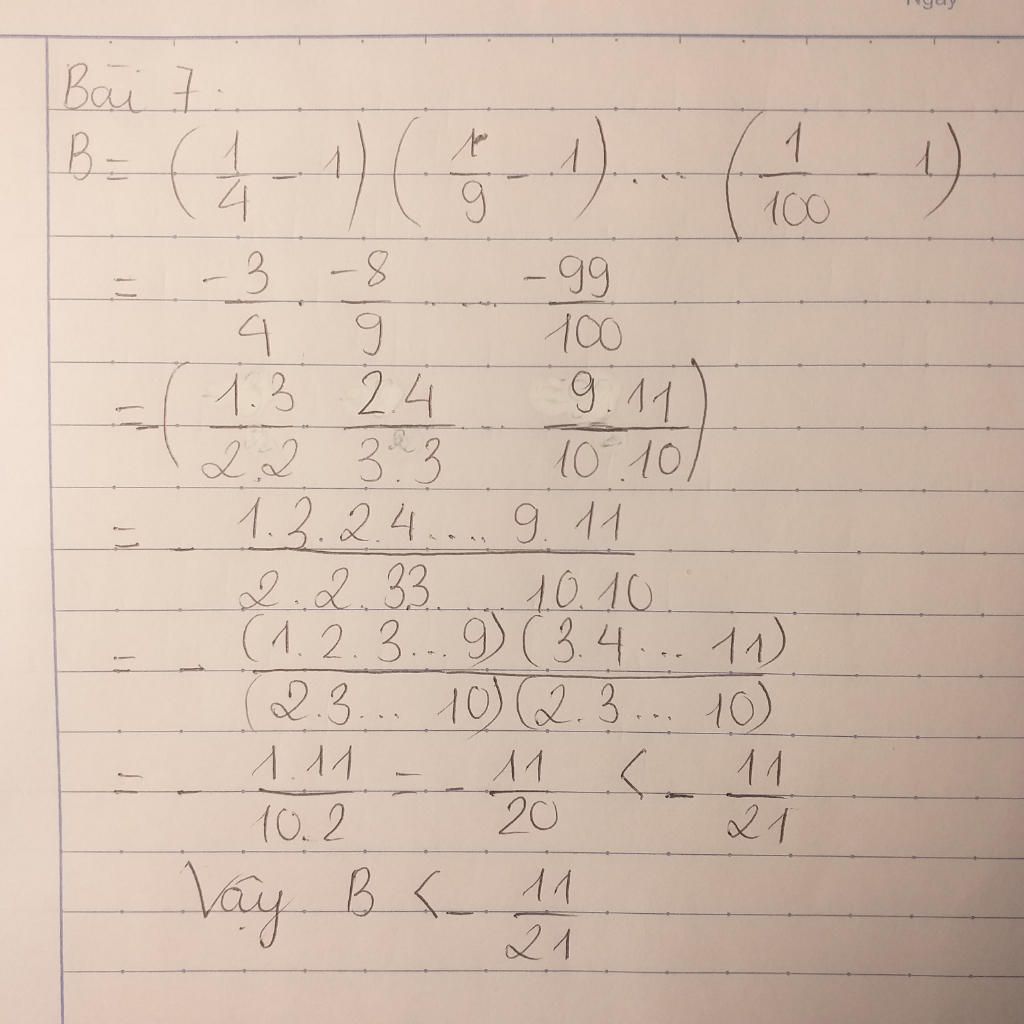 Ngày
Bài 7:
B = (1/4 - 1) (1/9 - 1) ... (1/100 - 1)
= -3/4 . -8/9 ..... -99/100
= -(1.3/2.2 2.4/3.3 ... 9.11/10.10)
= - 1.3.2.4.... 9.11 / 2.2.33.... 10.10
= - (1.2.3...9)(3.4...11) / (2.3...10)(2.3...10)
= - 1.11/10.2 = - 11/20 < - 11/21
Vậy B < - 11/21